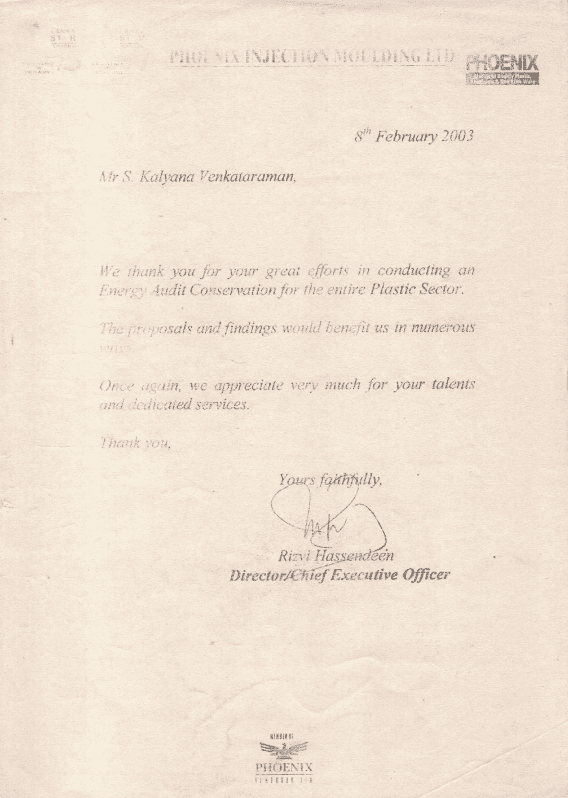 PHOENIX INJECTION MOULDING LTD
PHOENIX
8th February 2003
Mr S. Kalyana Venkataraman,
We thank you for your great efforts in conducting an
Energy Audit Conservation for the entire Plastic Sector.
The proposals and findings would benefit us in numerous
ways.
Once again, we appreciate very much for your talents
and dedicated services.
Thank you,
Yours faithfully,
Rizvi Hassendeen
Director/Chief Executive Officer
MEMBER OF
PHOENIX
VENTURES LTD